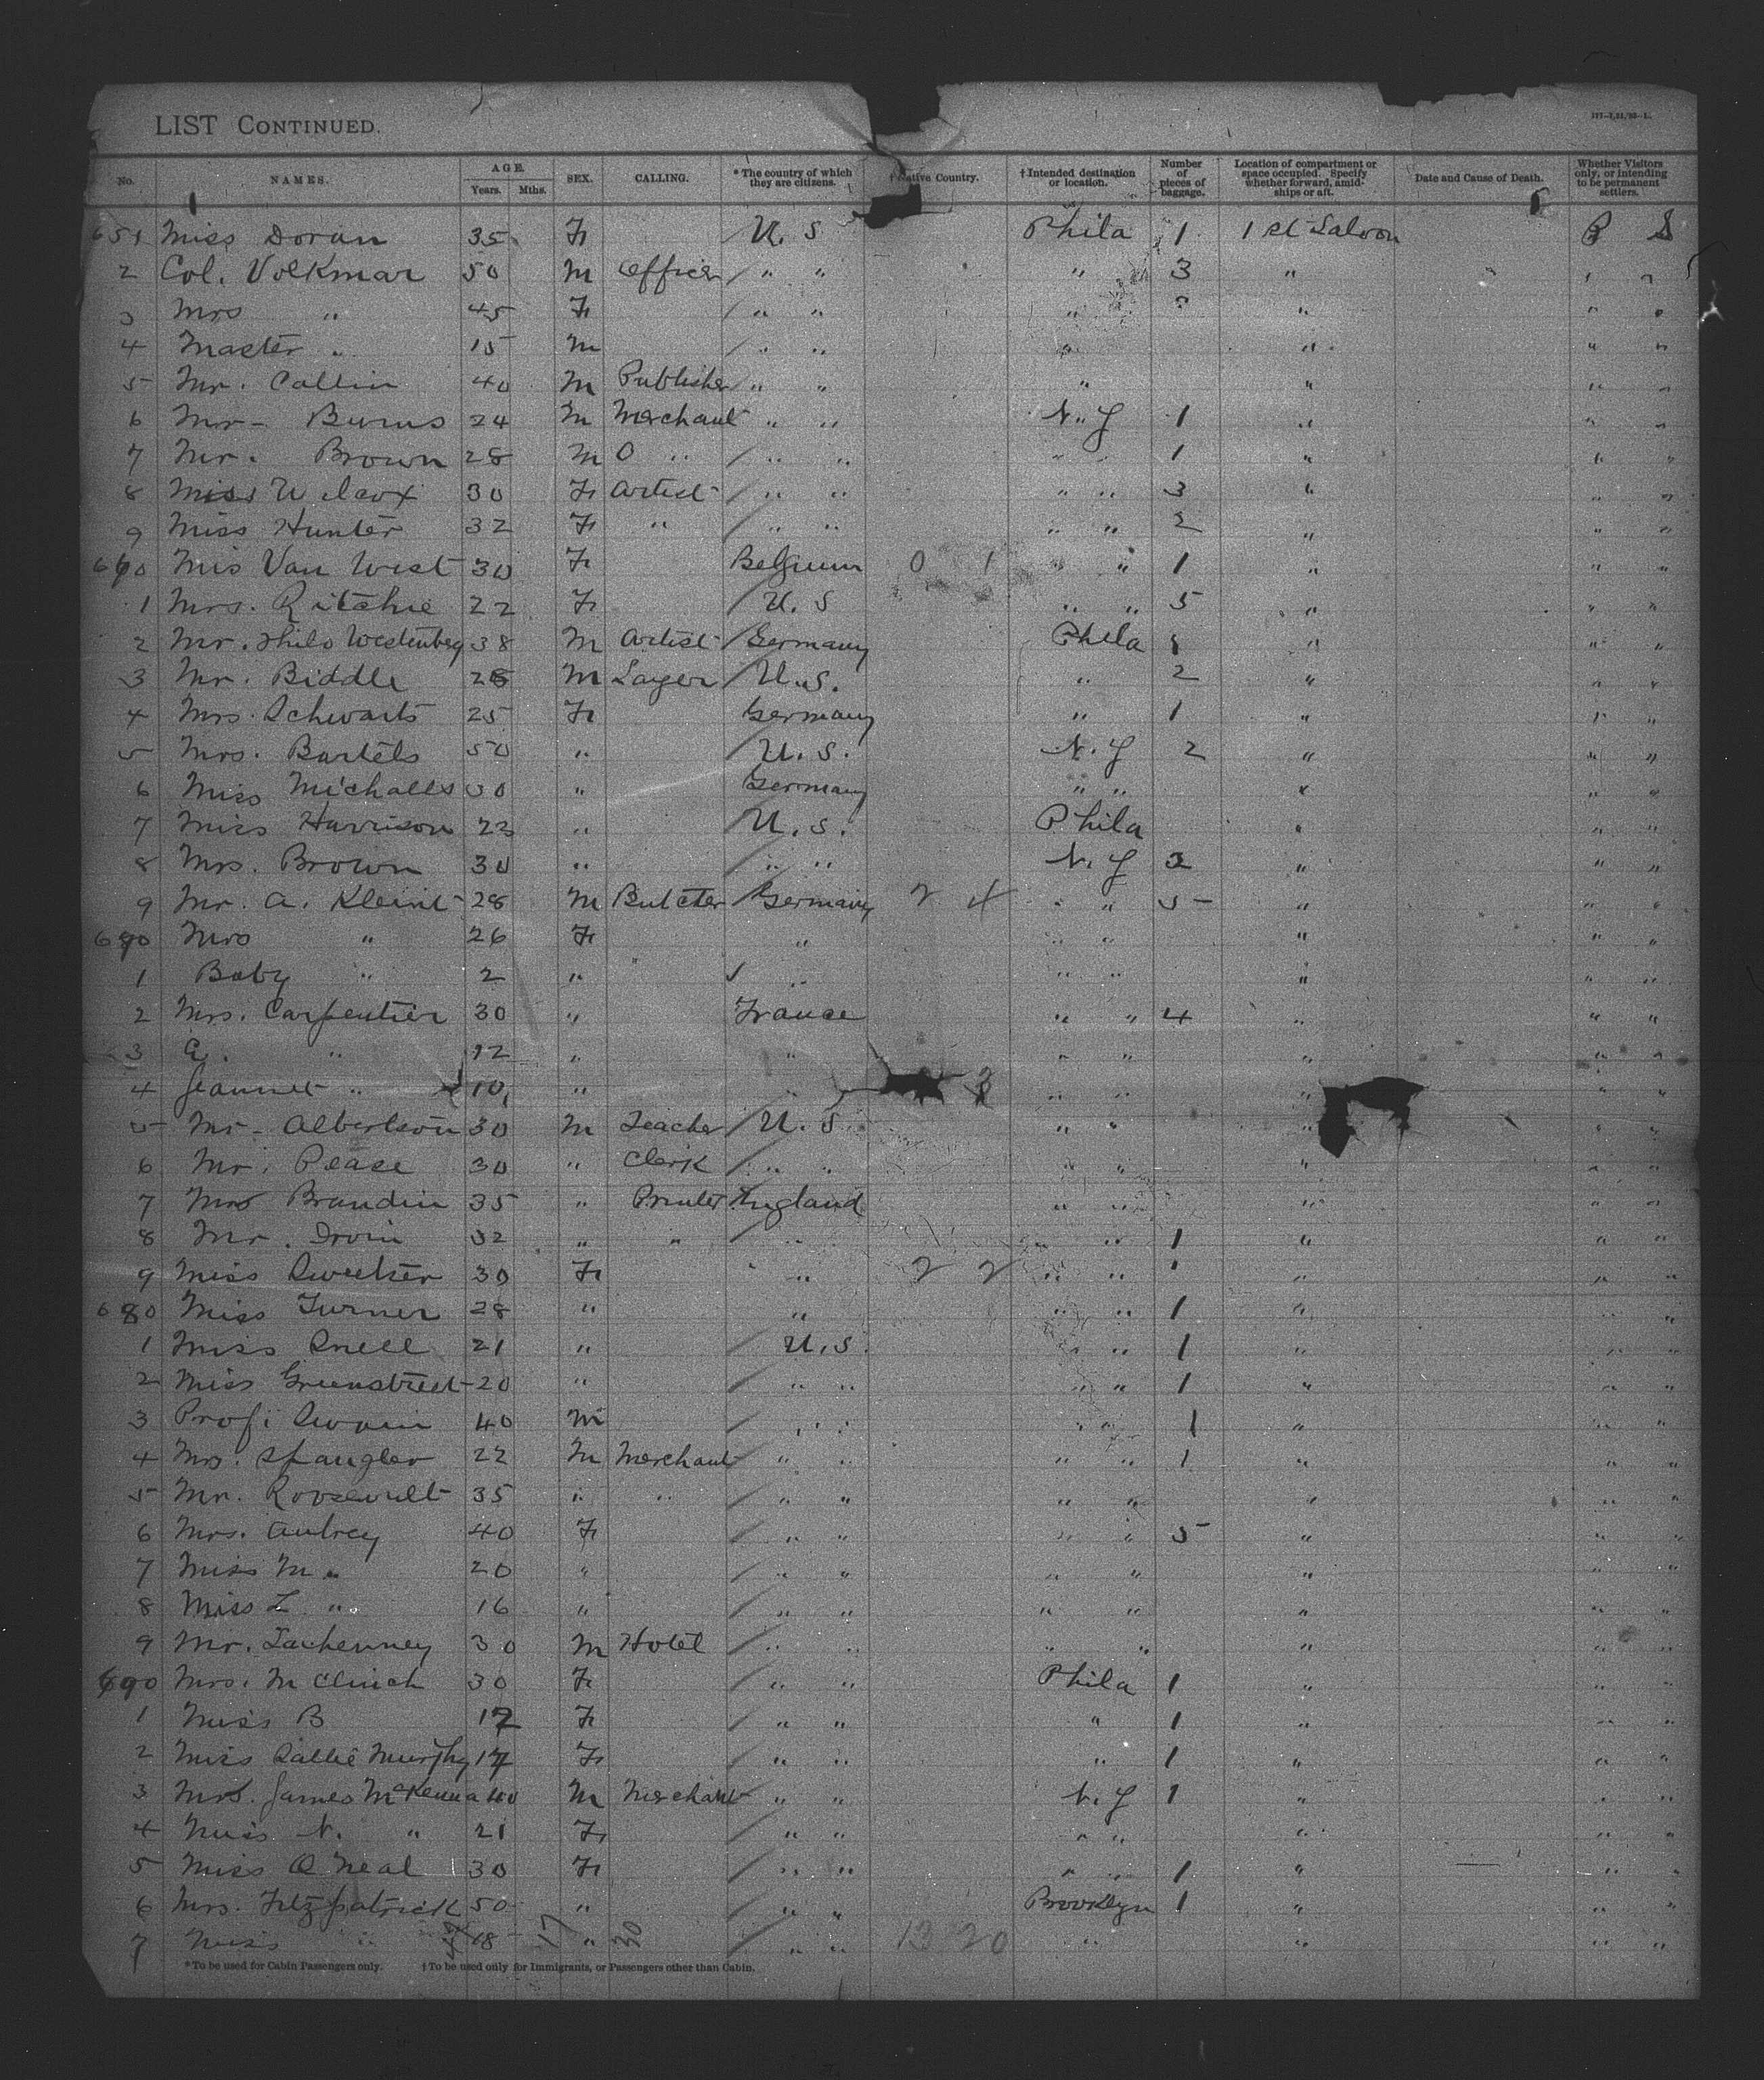 LIST CONTINUED.
No. NAMES. AGE. Years. Mths. SEX. CALLING. * The country of which they are citizens. † Native Country. † Intended destination or location. Number of pieces of baggage. Location of compartment or space occupied. Specify whether forward, amidships or aft. Date and Cause of Death. Whether Visitors only, or intending to be permanent settlers.
651 Miss Doran 35 F U. S Phila 1 1st Saloon S
2 Col. Volkmar 50 M Officer " " " 3 " " "
3 Mrs " 45 F " " " " " "
4 Master " 15 M " " " " " "
5 Mr. Callin 40 M Publisher " " " " " "
6 Mr - Burns 24 M Merchant " " N. Y 1 " " "
7 Mr. Brown 28 M " " " " " 1 " " "
8 Miss Wilcox 30 F Artist " " " " 3 " " "
9 Miss Hunter 32 F " " " " " 2 " " "
660 Mis Van West 30 F Belgium 0 1 " " 1 " " "
1 Mrs. Ritchie 22 F U. S " " 5 " " "
2 Mr. Thilo Westenberg 38 M Artist Germany Phila 1 " " "
3 Mr. Biddle M Layer U. S. " 2 " " "
4 Mrs. Schwarts 25 F Germany " 1 " " "
5 Mrs. Bartels 50 " U. S. N. Y 2 " " "
6 Miss Michalls 30 " Germany " " " " "
7 Miss Harrison 23 " U. S. Phila " " "
8 Mrs. Brown 30 " " " N. Y 2 " " "
9 Mr. A. Kleint 28 M Butcher Germany 2 4 " " 5 " " "
670 Mrs " 26 F " " " " " "
1 Baby " 2 " " " " " " "
2 Mrs. Carpentier 30 " France " " 4 " " "
3 " 12 " " " " " " "
4 Jeannet " 10 " " 3 " " " " "
5 Mr - Albertson 30 M Teacher U. S " " " " "
6 Mr. Pease 30 " Clerk " " " " " " "
7 Mr Brandin 35 " Printer England " " " " "
8 Mr. Irvin 32 " " " " " 1 " " "
9 Miss Sweetser 30 F " 2 2 " " 1 " " "
680 Miss Turner 28 " " " " 1 " " "
1 Miss Snell 21 " U. S. " " 1 " " "
2 Miss Greenstreet 20 " " " " " 1 " " "
3 Prof. Swain 40 M " " " " 1 " " "
4 Mr. Spangler 22 M Merchant " " " " 1 " " "
5 Mr. Roosevelt 35 " " " " " " " " "
6 Mrs. Aubrey 40 F " " " " 5 " " "
7 Miss M " 20 " " " " " " " "
8 Miss L " 16 " " " " " " " "
9 Mr. 30 M Hotel " " " " " " "
690 Mrs. McClinch 30 F " " Phila 1 " " "
1 Miss B F " " " 1 " " "
2 Miss Sallie Murphy 17 F " " " 1 " " "
3 Mr. James McKenna 40 M Merchant " " N. Y 1 " " "
4 Miss N. " 21 F " " " " " " "
5 Miss O Neal 30 F " " " " 1 " " "
6 Mrs. Fitzpatrick 50 " " " Brooklyn 1 " " "
7 Miss " 18 17 " 30 " " 13 20 " " " "
* To be used for Cabin Passengers only. † To be used only for Immigrants, or Passengers other than Cabin.